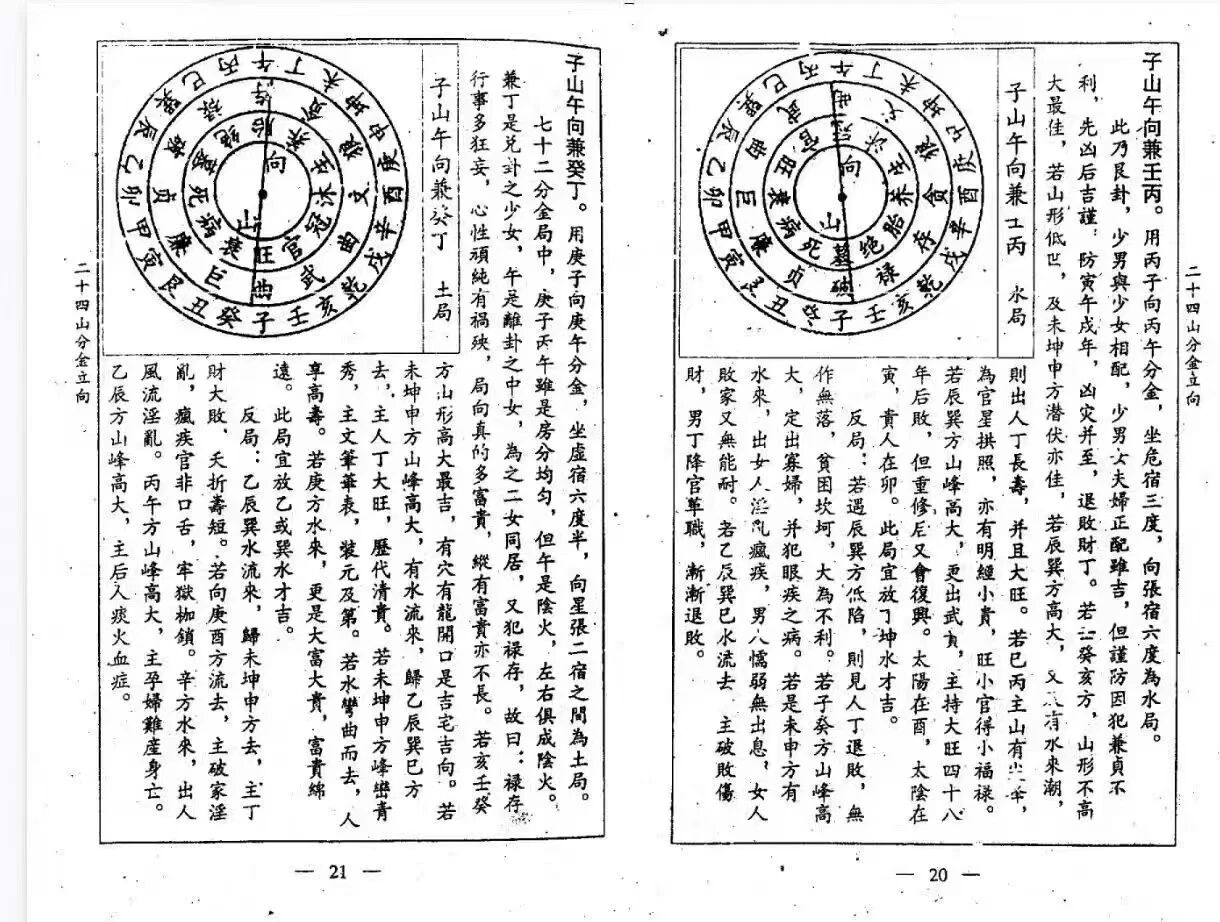 二十四山分金立向
子山午向兼壬丙。用丙子向丙午分金，坐危宿三度，向張宿六度為水局。
此乃艮卦，少男與少女相配，少男少女夫婦正配雖吉，但謹防因犯兼貞不
利，先凶后吉謹：防寅午戌年，凶灾并至，退敗財丁。若癸亥方，山形不高
大最佳，若山形低凹，及未坤申方潜伏亦佳，若辰巽方高大，又有水來潮，
子山午向兼丙 水局
則出人丁長壽，并且大旺。若巳丙主山有峯，
為官星拱照，亦有明經小貴，旺小官得小福禄。
若辰巽方山峰高大，更出武貴，主持大旺四十八
年后敗，但重修后又會復興。太陽在酉，太陰在
寅，貴人在卯。此局宜放丁坤水才吉。
反局：若遇辰巽方低陷，則見人丁退敗，無
作無落，貧困坎坷，大為不利。若子癸方山峰高
大，定出寡婦，并犯眼疾之病。若是未申方有
水來，出女人淫乱瘋疾，男人懦弱無出息，女人
敗家又無能耐。若乙辰巽巳水流去 主破敗傷
財，男丁降官革職，漸漸退敗。
午丁未坤申庚酉辛戌乾亥壬子癸丑艮寅甲卯乙辰巽巳丙
文狼貪存禄破貞廉巨曲武
沐生養胎绝墓死病衰旺官
向
山
— 20 —
子山午向兼癸丁。用庚子向庚午分金，坐虛宿六度半，向星張二宿之間為土局。
七十二分金局中，庚子丙午雖是房分均匀，但午是陰火，左右俱成陰火。
兼丁是兑卦之少女，午是離卦之中女，為之二女同居，又犯禄存，故曰：禄存
行事多狂妄，心性頑純有禍殃，局向真的多富貴，縱有富貴亦不長。若亥壬癸
子山午向兼癸丁 土局
方山形高大最吉，有穴有龍開口是吉宅吉向。若
未坤申方山峰高大，有水流來，歸乙辰巽巳方
去，主人丁大旺，歷代清貴。若未坤申方峰巒青
秀，主文筆筆表，裝元及第。若水彎曲而去，人
享高壽。若庚方水來，更是大富大貴，富貴綿
遠。此局宜放乙或巽水才吉。
反局：乙辰巽水流來，歸未坤申方去，主丁
財大敗，夭折壽短。若向庚酉方流去，主破家淫
亂，瘋疾官非口舌，牢獄枷鎖。辛方水來，出人
風流淫亂。丙午方山峰高大，主孕婦難産身亡。
乙辰方山峰高大，主后入痰火血症。
午丁未坤申庚酉辛戌乾亥壬子癸丑艮寅甲卯乙辰巽巳丙
貪狼文曲武曲巨廉貞破禄
胎養生沐冠官旺衰病死墓绝
向
山
二十四山分金立向
— 21 —